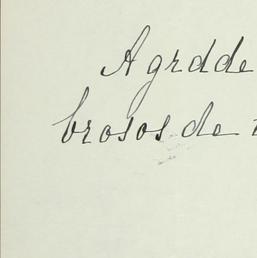 Agrdde
brosos de